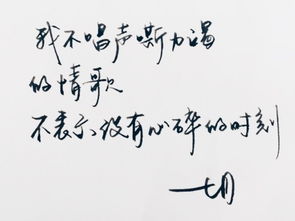 我不唱声嘶力竭
的情歌
不表示没有心碎的时刻
——七月